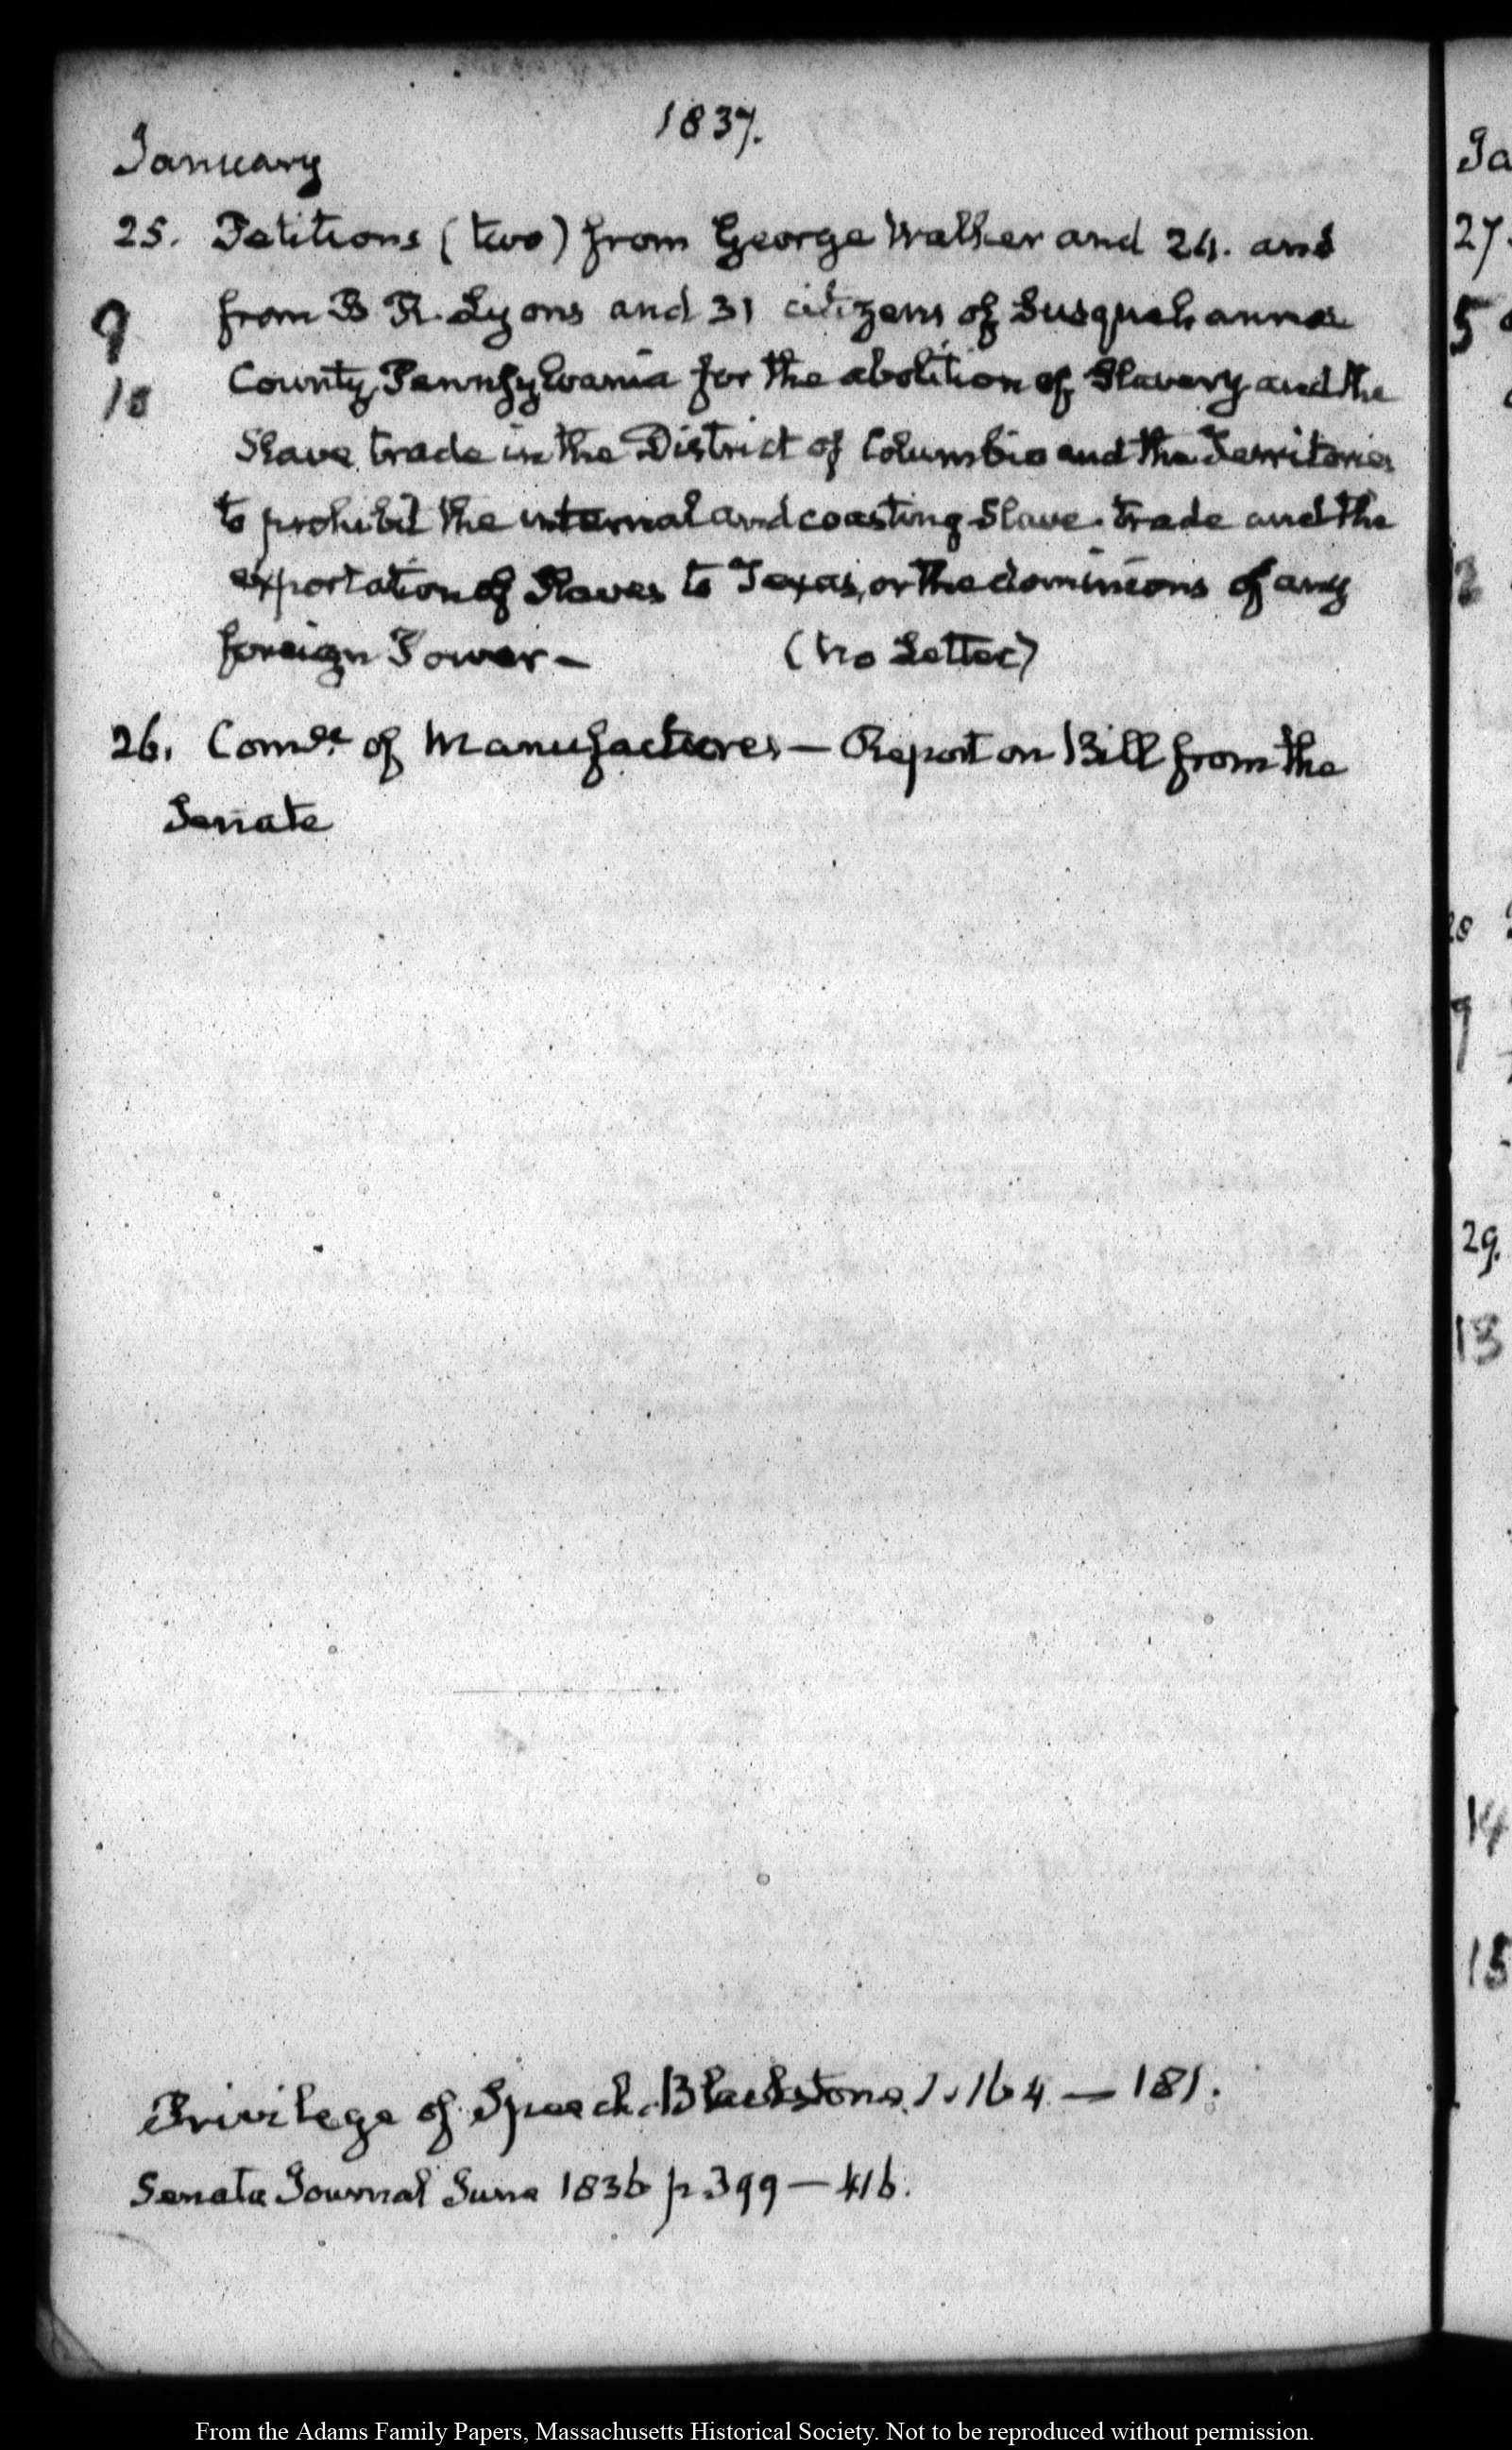 1837.
January
25. Petitions (two) from George Walker and 24. and
9 from B R. Lyons and 31 citizens of Susquehanna
10 County, Pennsylvania for the abolition of Slavery and the
Slave trade in the District of Columbia and the Territories
to prohibit the internal and coasting Slave-trade and the
exportation of Slaves to Texas, or the dominions of any
foreign Power— (No Letter)
26. Comee. of Manufactures— Report on Bill from the
Senate
Privilege of Speech. Blackstone. 1. 164 — 181.
Senate Journal June 1836 p 399 — 416.
Ja
27.
5
29.
13
14
15
From the Adams Family Papers, Massachusetts Historical Society. Not to be reproduced without permission.